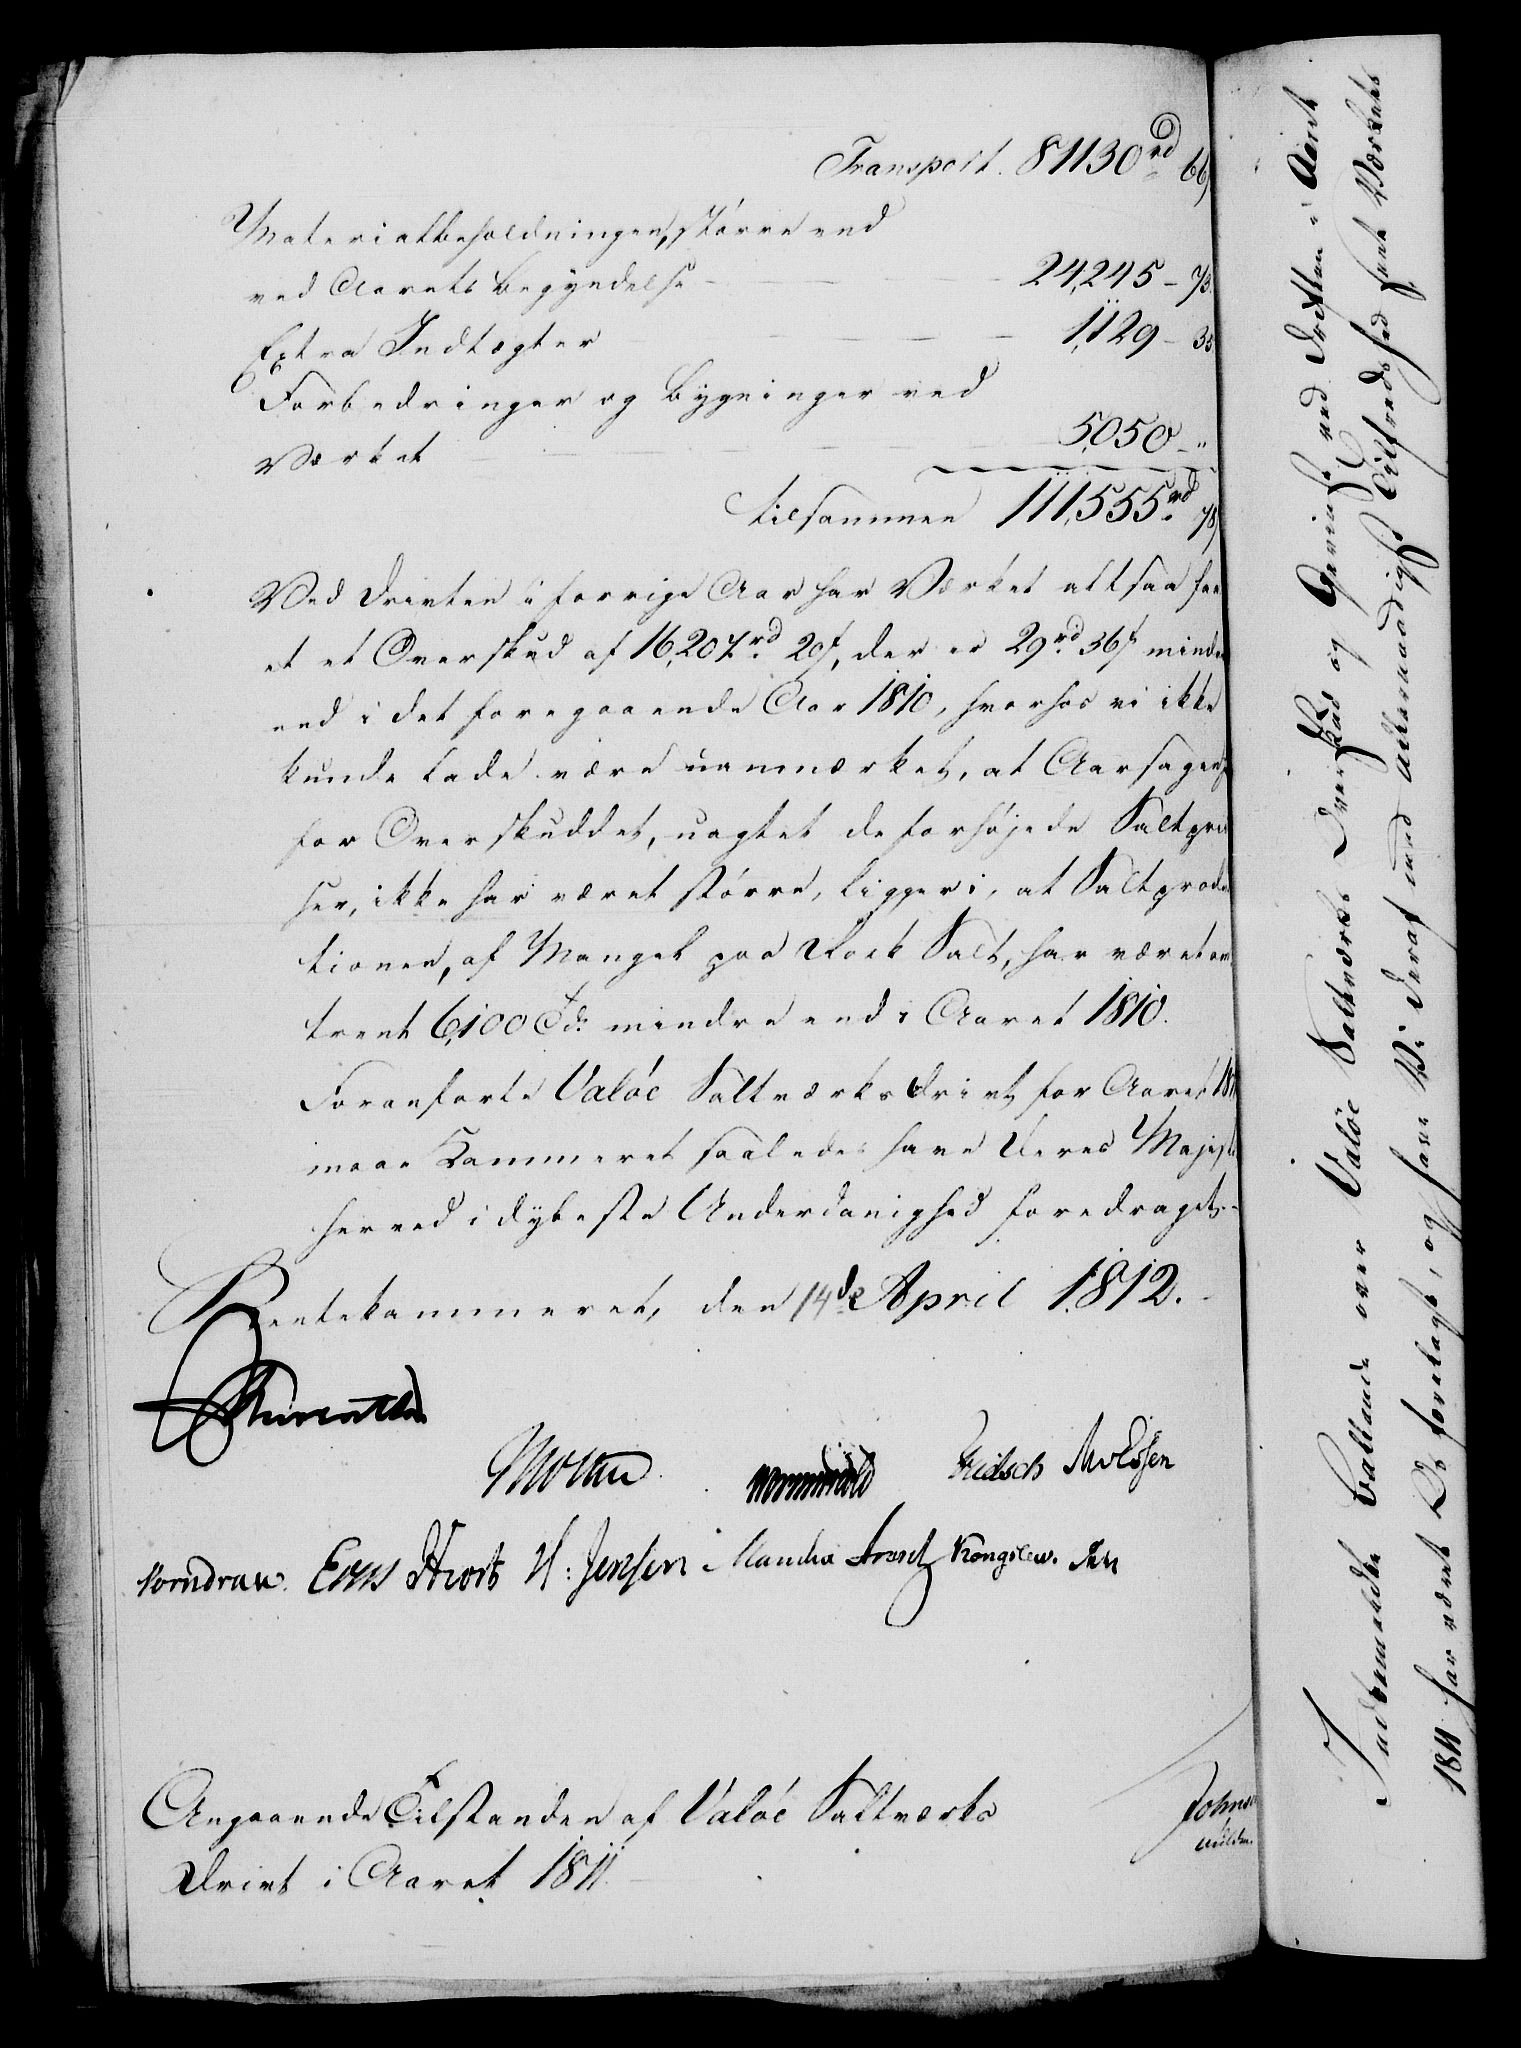 Transport. 81130 rd 66
Materialbeholdningen, større end
ved Aarets Begyndelse - 24,245 - 73
Extra Indtægter - 1,129 - 35
Forbedringer og Bygninger ved
Værket - 5,050 - "
tilsammen 111,555 rd 78
Ved Driften i forrige Aar har Værket altsaa ha
et et Overskud af 16,207 rd 20 ß, der er 29 rd 36 ß mindre
end i det foregaaende Aar 1810, hvorhos vi ikke
kunde lade være uanmærket, at Aarsagen
for Overskuddet, uagtet de forhøjede Saltpri
ser, ikke har været større, ligger i, at Saltproduc
tionen, af Mangel paa Rock Salt, har været om
trent 6,100 Td. mindre end i Aaret 1810.
Foranførte Valöe Saltværks Drivt for Aaret 1811
maae Kammeret saaledes have Deres Majestæt
herved i dybeste Underdanighed foredraget.
Rentekammeret, den 14de April 1812.
Fritsch
Vorndran. Hiort H: Jensen
Angaaende Tilstanden af Valöe Saltværks
Drivt i Aaret 1811.
Indbemeldte Ballance over Valöe Saltværks Overskud og Gevinst ved Driften i Aaret
1811 har været Os forelagt, og have Vi deraf med allernaadigst Tilfredshed seet Værkets